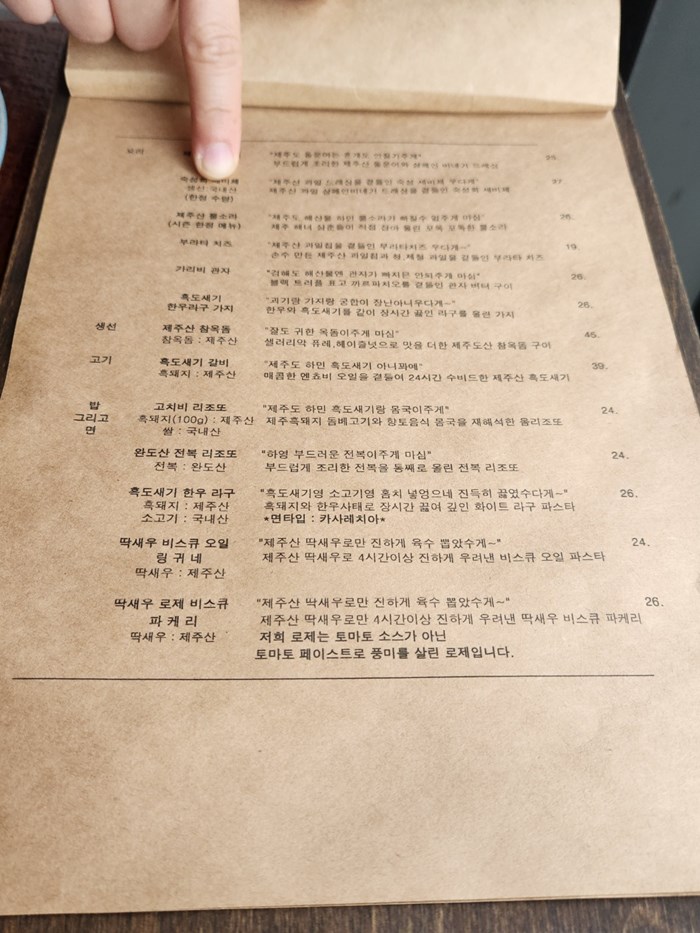 요리
"제주도 돌문어는 혼개도 안필기주게" 25.
부드럽게 조리한 제주산 돌문어와 샴페인 비네거 드레싱
숙성회 세비체 "제주산 과일 드레싱을 곁들인 숙성 세비체 우다게~" 37.
생선 국내산 제주산 과일 샴페인비네거 드레싱을 곁들인 숙성회 세비체
(한정 수량)
제주산 뿔소라 "제주도 해산물 하민 뿔소라가 빠질수 없주게 마심" 28.
(시즌 한정 메뉴) 제주 해녀 삼춘들이 직접 잡아 올린 오독 오독한 뿔소라
부라타 치즈 "제주산 과일칩을 곁들인 부라타치즈 우다게~" 19.
손수 만든 제주산 과일칩과 청,제철 과일을 곁들인 부라타 치즈
가리비 관자 "검해도 해산물엔 관자가 빠지믄 안되주게 마심" 26.
블랙 트러플 표고 까르파치오를 곁들인 관자 버터 구이
흑도새기 "괴기랑 가지랑 궁합이 장난아니우다게~" 26.
한우라구 가지 한우와 흑도새기를 같이 장시간 끓인 라구를 올린 가지
생선 제주산 참옥돔 "잘도 귀한 옥돔이주게 마심" 45.
참옥돔 : 제주산 샐러리악 퓨레,헤이즐넛으로 맛을 더한 제주도산 참옥돔 구이
고기 흑도새기 갈비 "제주도 하민 흑도새기 아니꽈에" 39.
흑돼지 : 제주산 매콤한 엔쵸비 오일을 곁들여 24시간 수비드한 제주산 흑도새기
밥 고치비 리조또 "제주도 하민 흑도새기랑 몸국이주게" 24.
그리고 흑돼지(100g) : 제주산 제주흑돼지 돔베고기와 향토음식 몸국을 재해석한 몸리조또
면 쌀 : 국내산
완도산 전복 리조또 "하영 부드러운 전복이주게 마심" 24.
전복 : 완도산 부드럽게 조리한 전복을 통째로 올린 전복 리조또
흑도새기 한우 라구 "흑도새기영 소고기영 훔치 넣엉으네 진득히 끓였수다게~" 26.
흑돼지 : 제주산 흑돼지와 한우사태로 장시간 끓여 깊인 화이트 라구 파스타
소고기 : 국내산 *면타입 : 카사레치아*
딱새우 비스큐 오일 "제주산 딱새우로만 진하게 육수 뽑았수게~" 24.
링 귀 네 제주산 딱새우로 4시간이상 진하게 우려낸 비스큐 오일 파스타
딱새우 : 제주산
딱새우 로제 비스큐 "제주산 딱새우로만 진하게 육수 뽑았수게~" 26.
파 케 리 제주산 딱새우로만 4시간이상 진하게 우려낸 딱새우 비스큐 파케리
딱새우 : 제주산 저희 로제는 토마토 소스가 아닌
토마토 페이스트로 풍미를 살린 로제입니다.